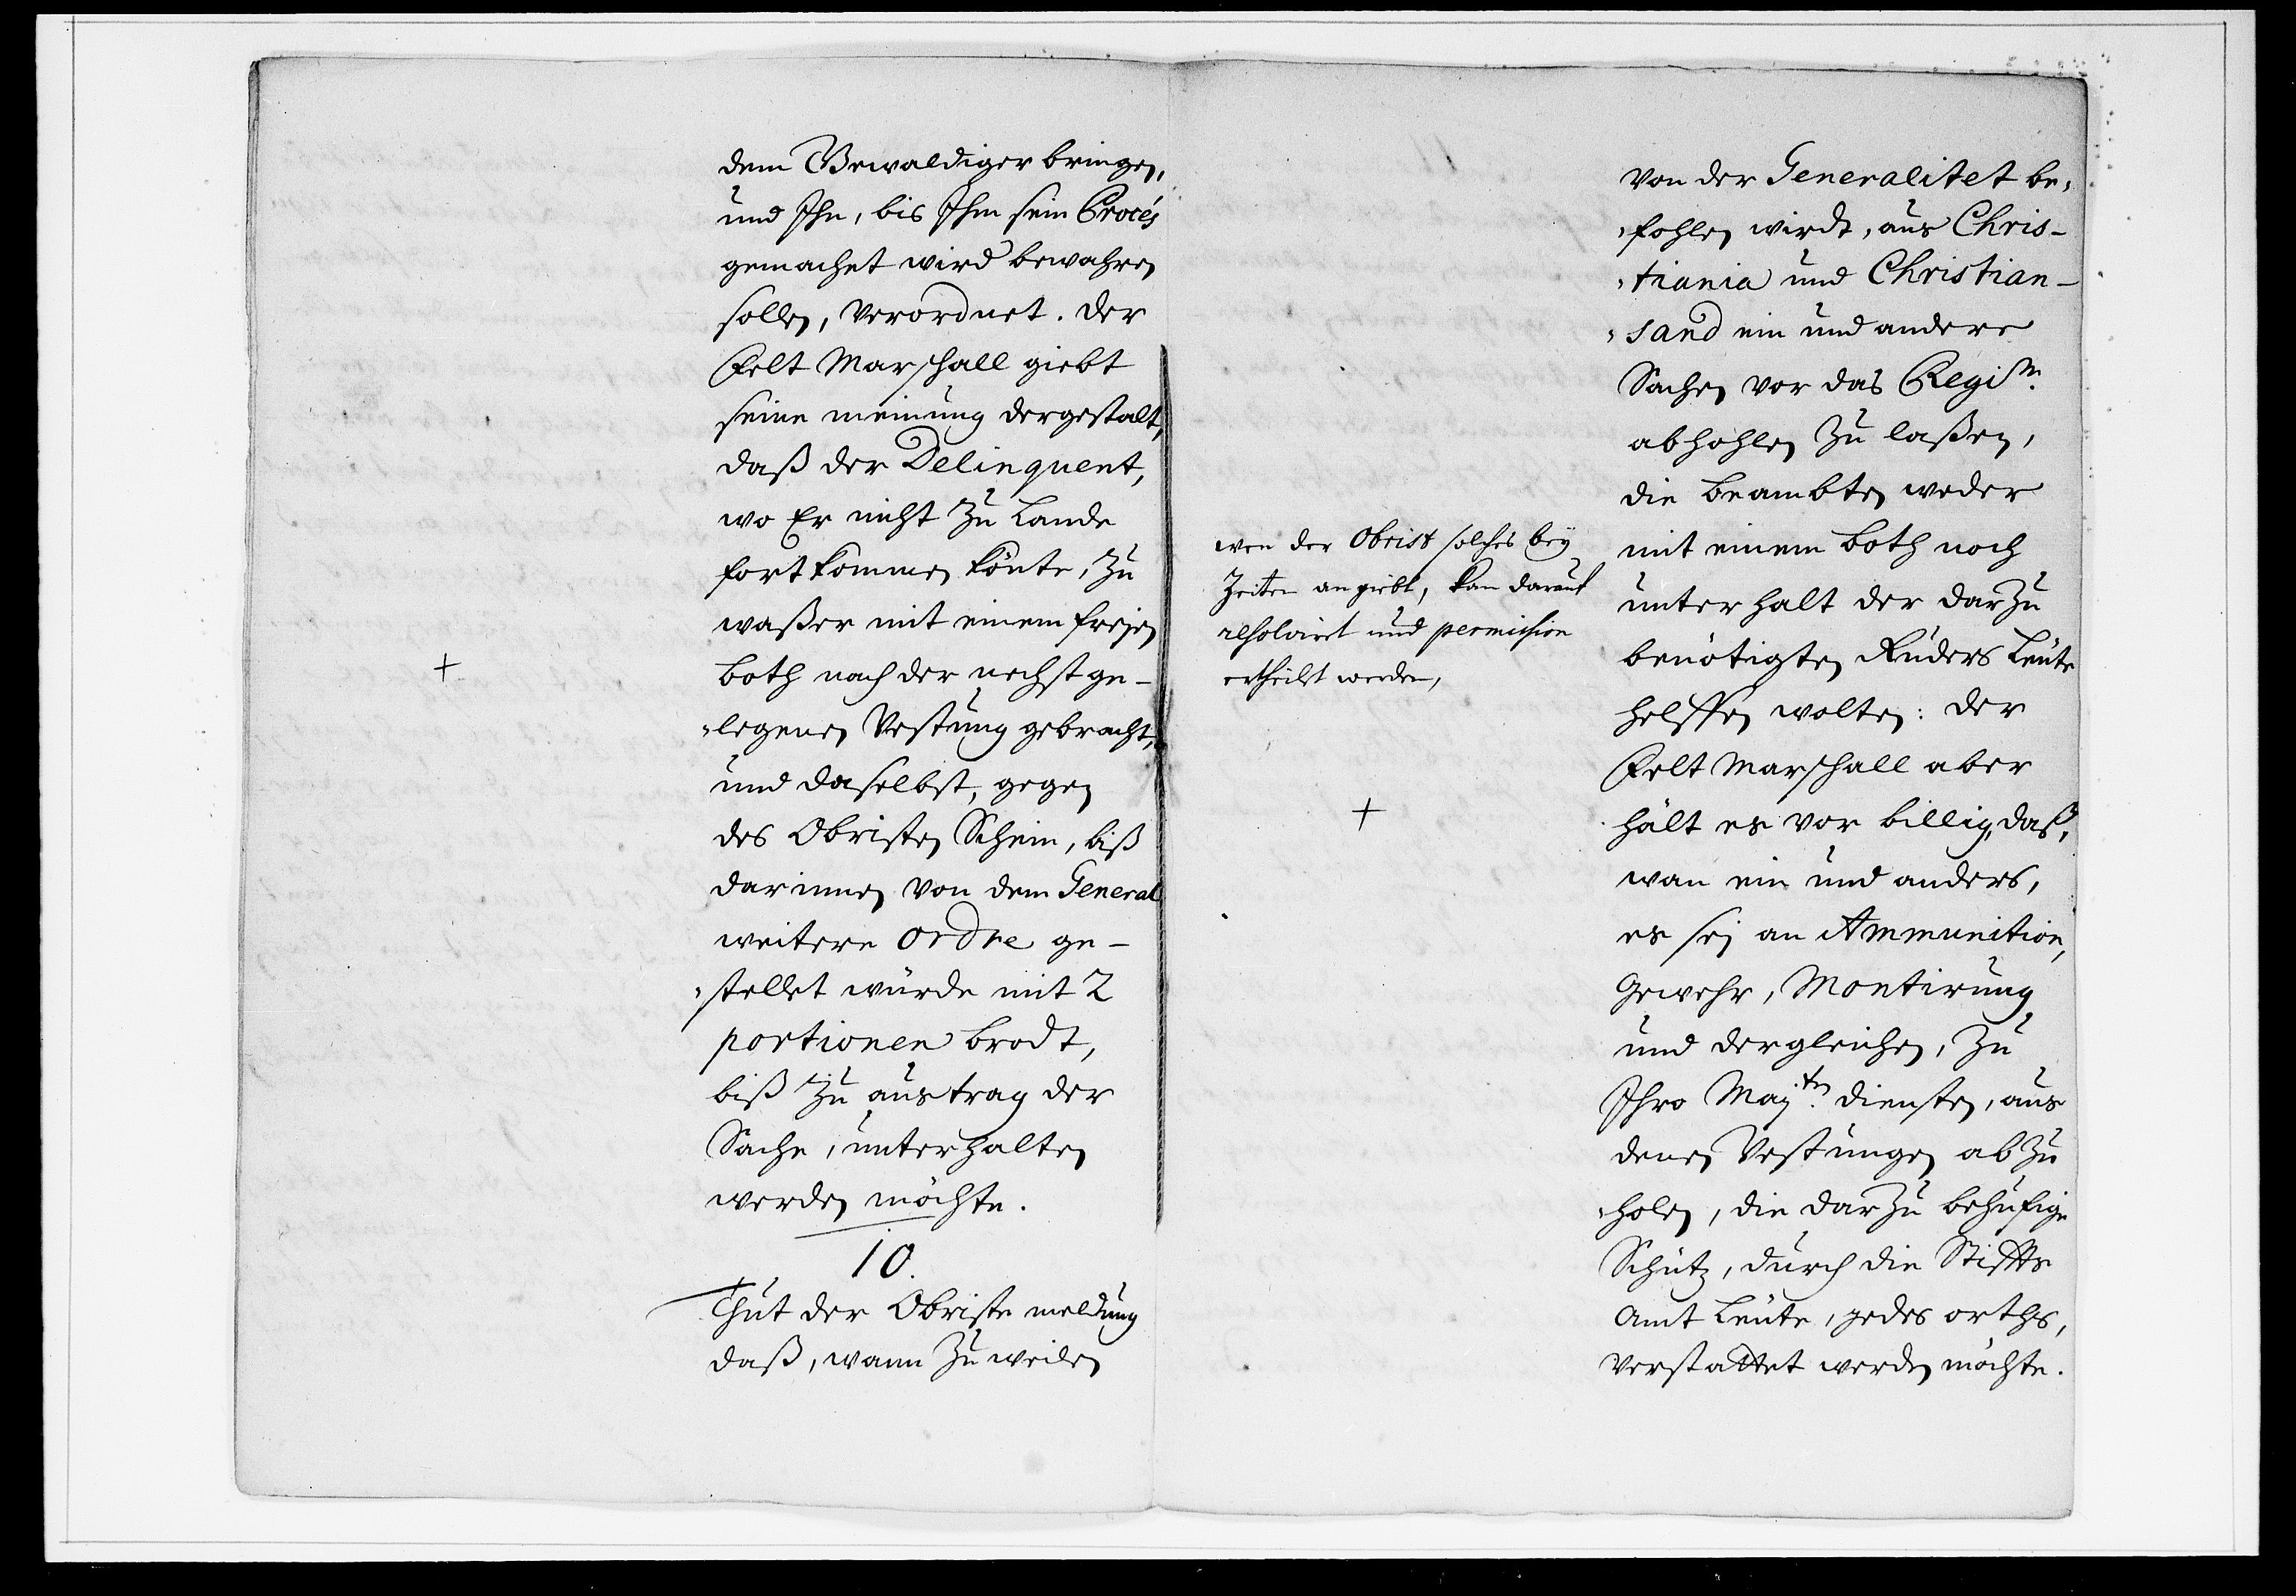 dem Gewaldiger bringen,
und Ihn, bis Ihm sein Procés
gemachet wird bewahren
sollen, verordnet. Der
Felt Marschall giebt
seine meinung dergestalt,
daß der Delinquent,
wo Er nicht zu Lande
fortkommen könte, zu
waßer mit einem freien
+
both nach der nechst ge-
„legenen Vestung gebracht,
und daselbst, gegen
des Obristen Schein, biß
darinnen von dem General
weitere ordre ge-
„stellet würde mit 2
portionen brodt,
biß zu austrag der
Sache, unterhalten
werden möchte.
10.
Thut der Obriste meldung
daß, wann zu weilen
von der Generalitet be„
„fohlen wirdt, aus Chris-
„tiania und Christian-
„sand ein und andere
Sachen vor das Regim.
abhohlen zu laßen,
die beambten weder
mit einem both noch
unterhalt der darzu
benötigten Ruders Leute
helffen wolten: Der
Felt Marschall aber
hält es vor billig, daß,
wan ein und anders,
es sej an Ammunition,
Gewehr, Montirung
und dergleichen, zu
Ihro Maj.tn diensten, aus
denen Vestungen ab zu
„holen, die darzu behufige
Schütz, durch die Stiffts
Amt Leute, jedes orths,
verstattet werden möchte.
wen der Obrist solches bey
Zeiten angiebt, kan darauf
resolviret und permission
ertheilet werden,
+